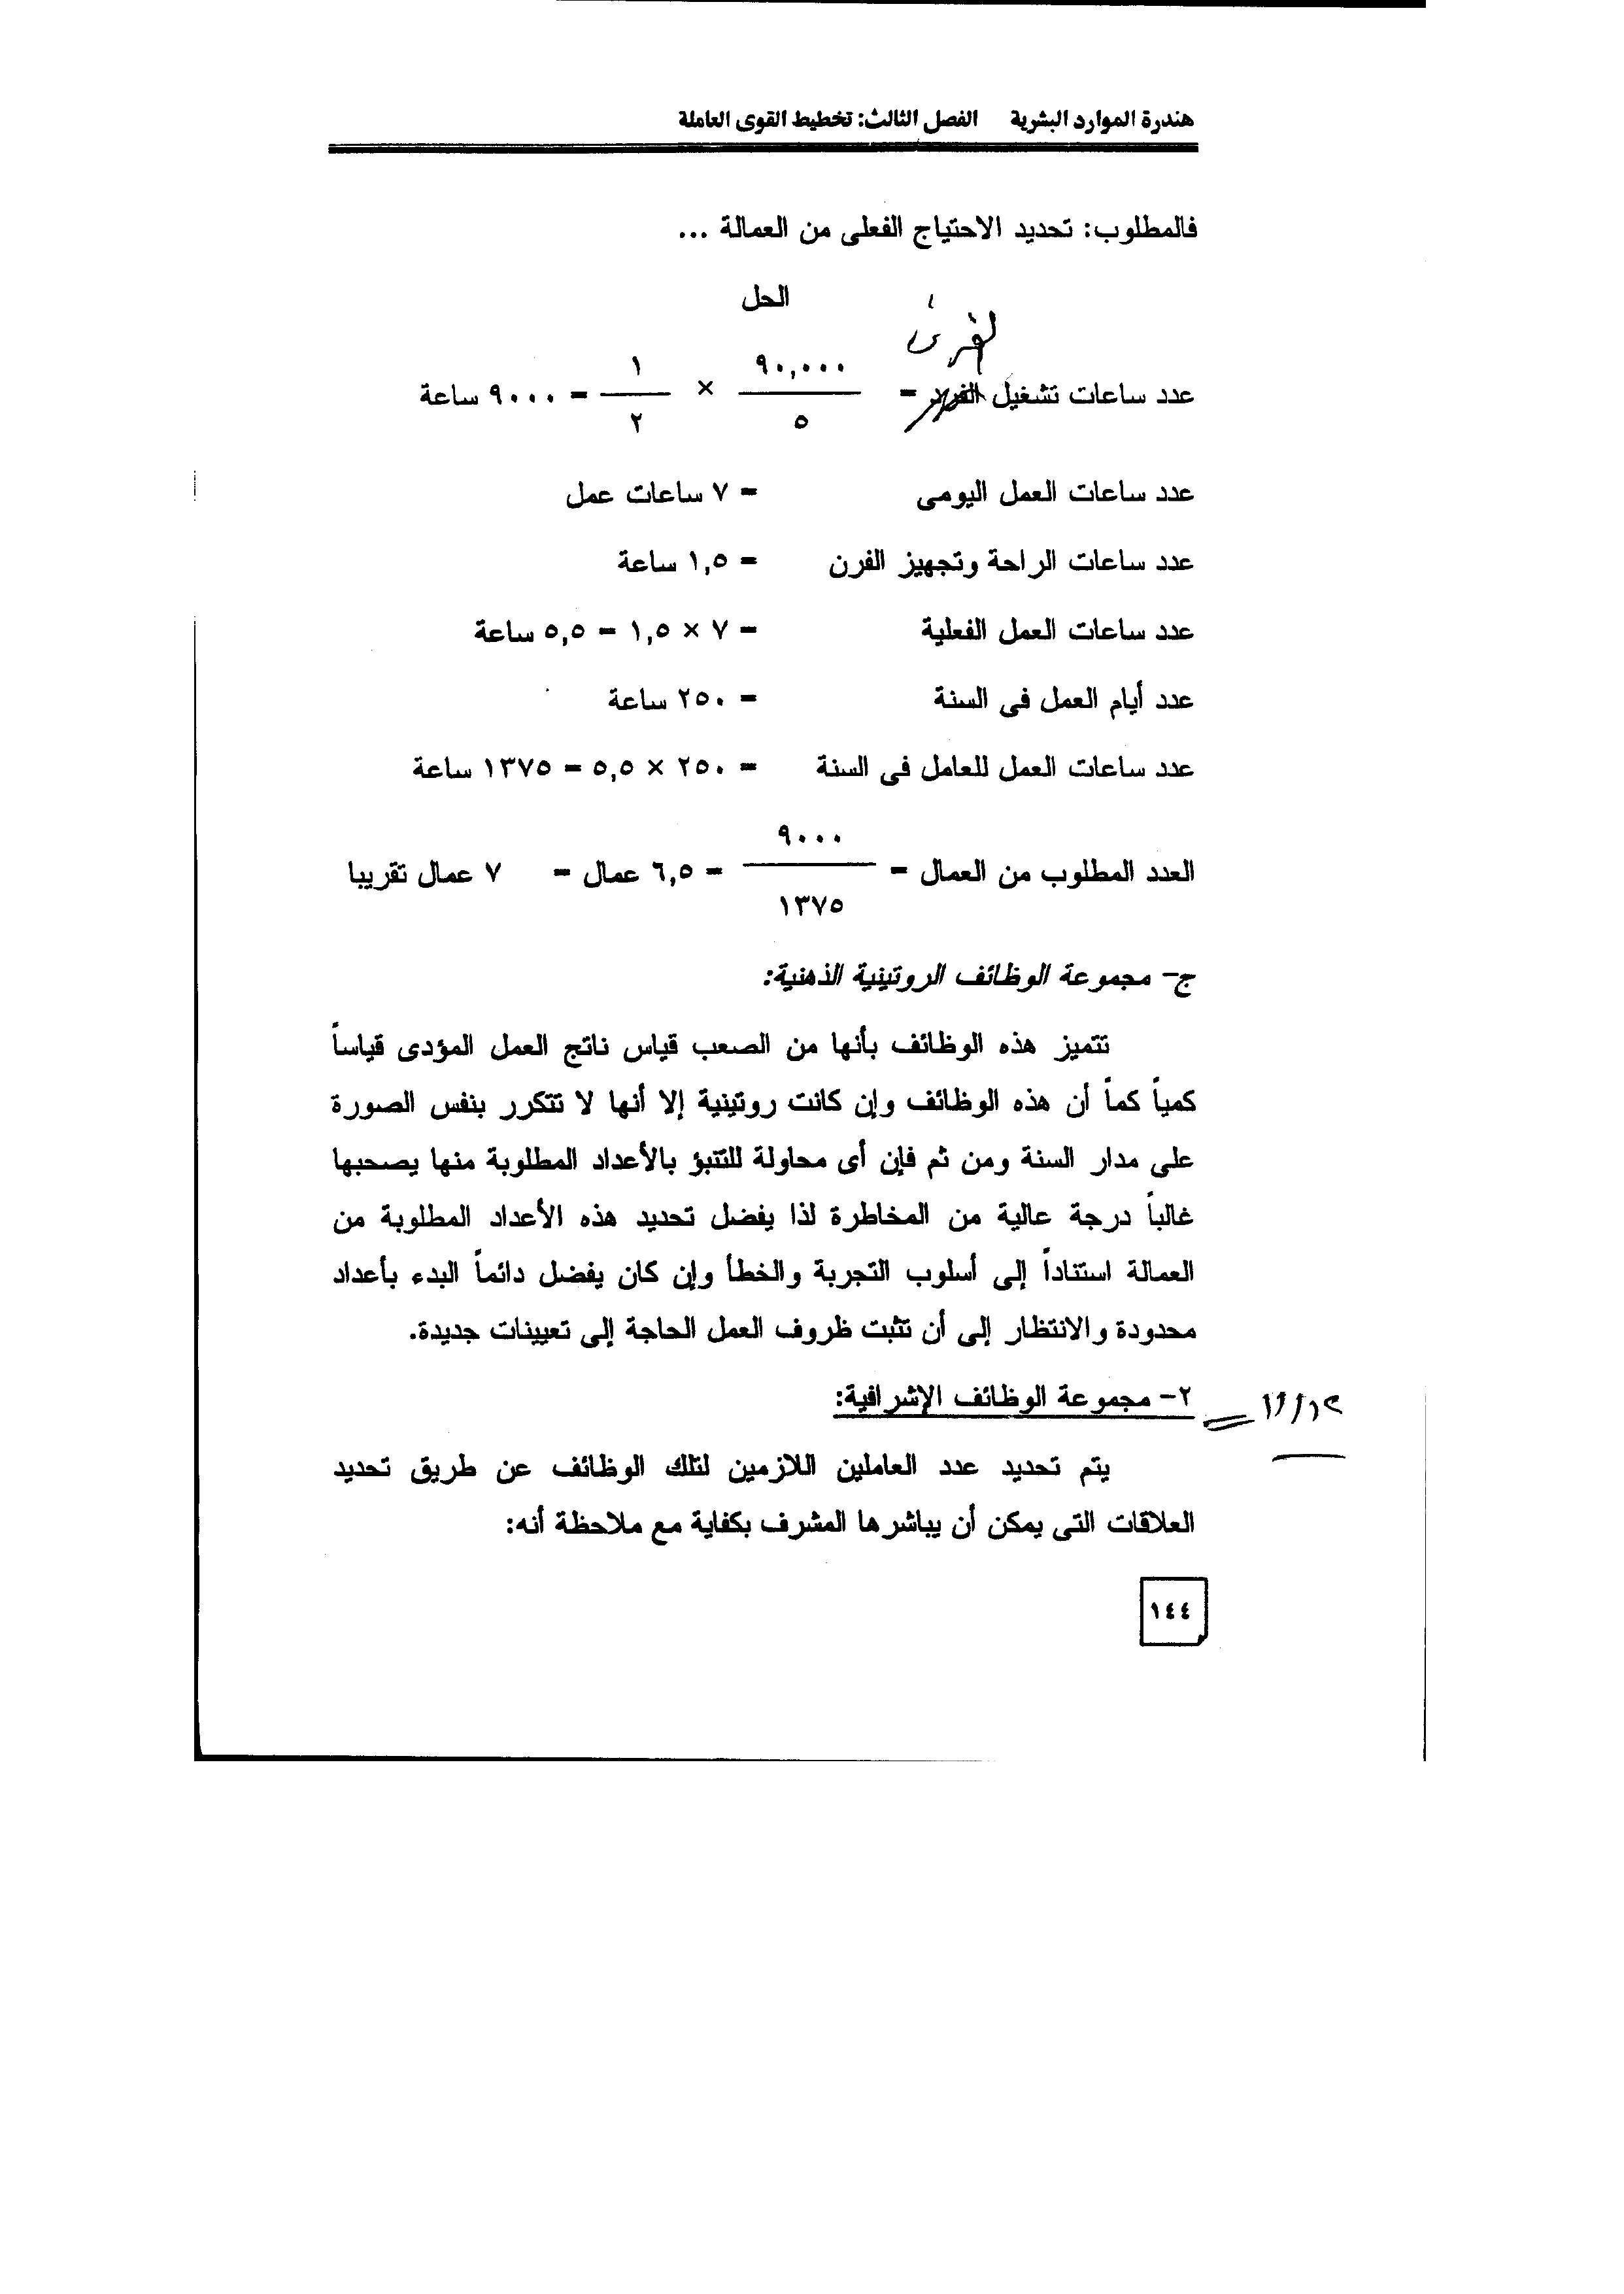 هندرة الموارد البشرية الفصل الثالث: تخطيط القوى العاملة
فالمطلوب: تحديد الاحتياج الفعلى من العمالة ...
الحل
الفرن
٩٠,٠٠٠ ١
عدد ساعات تشغيل الفرد = × = ٩٠٠٠ ساعة
٥ ٢
عدد ساعات العمل اليومى = ٧ ساعات عمل
عدد ساعات الراحة وتجهيز الفرن = ١,٥ ساعة
عدد ساعات العمل الفعلية = ٧ × ١,٥ = ٥,٥ ساعة
عدد أيام العمل فى السنة = ٢٥٠ ساعة
عدد ساعات العمل للعامل فى السنة = ٢٥٠ × ٥,٥ = ١٣٧٥ ساعة
٩٠٠٠
العدد المطلوب من العمال = = ٦,٥ عمال = ٧ عمال تقريبا
١٣٧٥
ج- مجموعة الوظائف الروتينية الذهنية:
تتميز هذه الوظائف بأنها من الصعب قياس ناتج العمل المؤدى قياساً
كمياً كماً أن هذه الوظائف وإن كانت روتينية إلا أنها لا تتكرر بنفس الصورة
على مدار السنة ومن ثم فإن أى محاولة للتنبؤ بالأعداد المطلوبة منها يصحبها
غالباً درجة عالية من المخاطرة لذا يفضل تحديد هذه الأعداد المطلوبة من
العمالة استناداً إلى أسلوب التجربة والخطأ وإن كان يفضل دائماً البدء بأعداد
محدودة والانتظار إلى أن تثبت ظروف العمل الحاجة إلى تعيينات جديدة.
٢- مجموعة الوظائف الإشرافية:
يتم تحديد عدد العاملين اللازمين لتلك الوظائف عن طريق تحديد
العلاقات التى يمكن أن يباشرها المشرف بكفاية مع ملاحظة أنه:
١٤٤